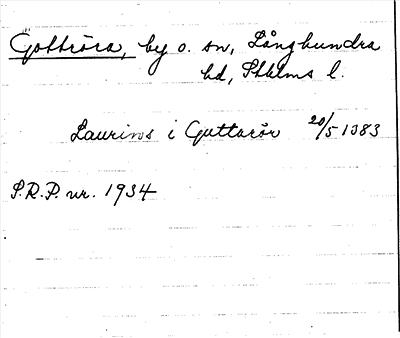 Gottröra, by o. sn, Långhundra
hd, Sthlms l.
Laurins i Guttarör 20/5 1383
S.R.P. nr. 1934